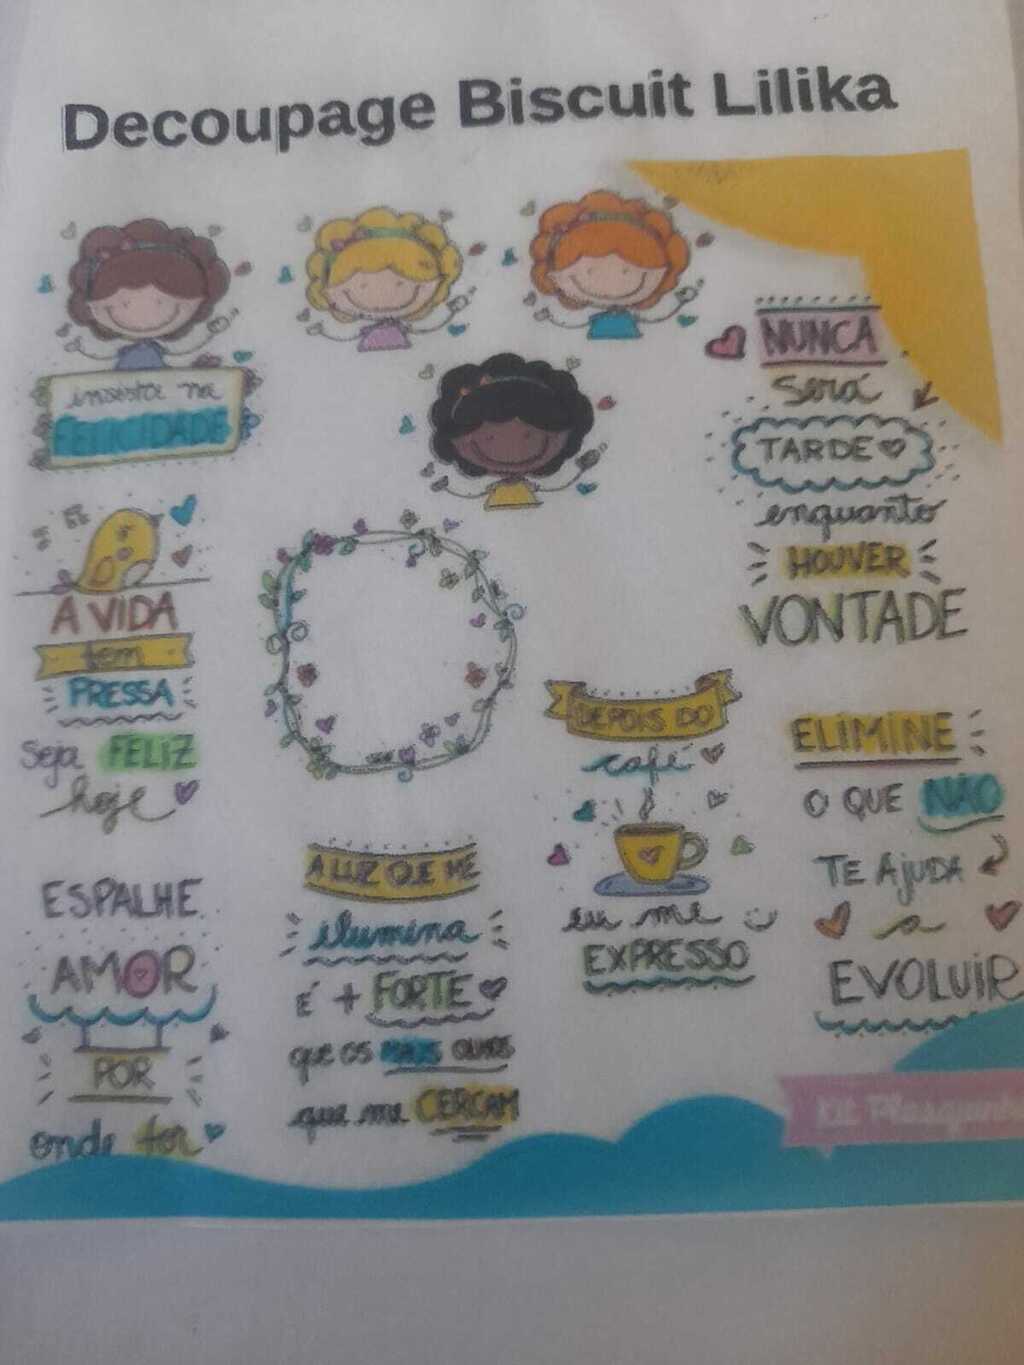 Decoupage Biscuit Lilika
insista na
FELICIDADE
A VIDA
tem
PRESSA
Seja FELIZ
hoje
ESPALHE
AMOR
POR
onde for
A LUZ QUE ME
ilumina
É + FORTE
que os olhos
que me CERCAM
DEPOIS DO
café
eu me
EXPRESSO
NUNCA
Será
TARDE
enquanto
HOUVER
VONTADE
ELIMINE
O QUE NÃO
TE AJUDA
a
EVOLUIR
Kit